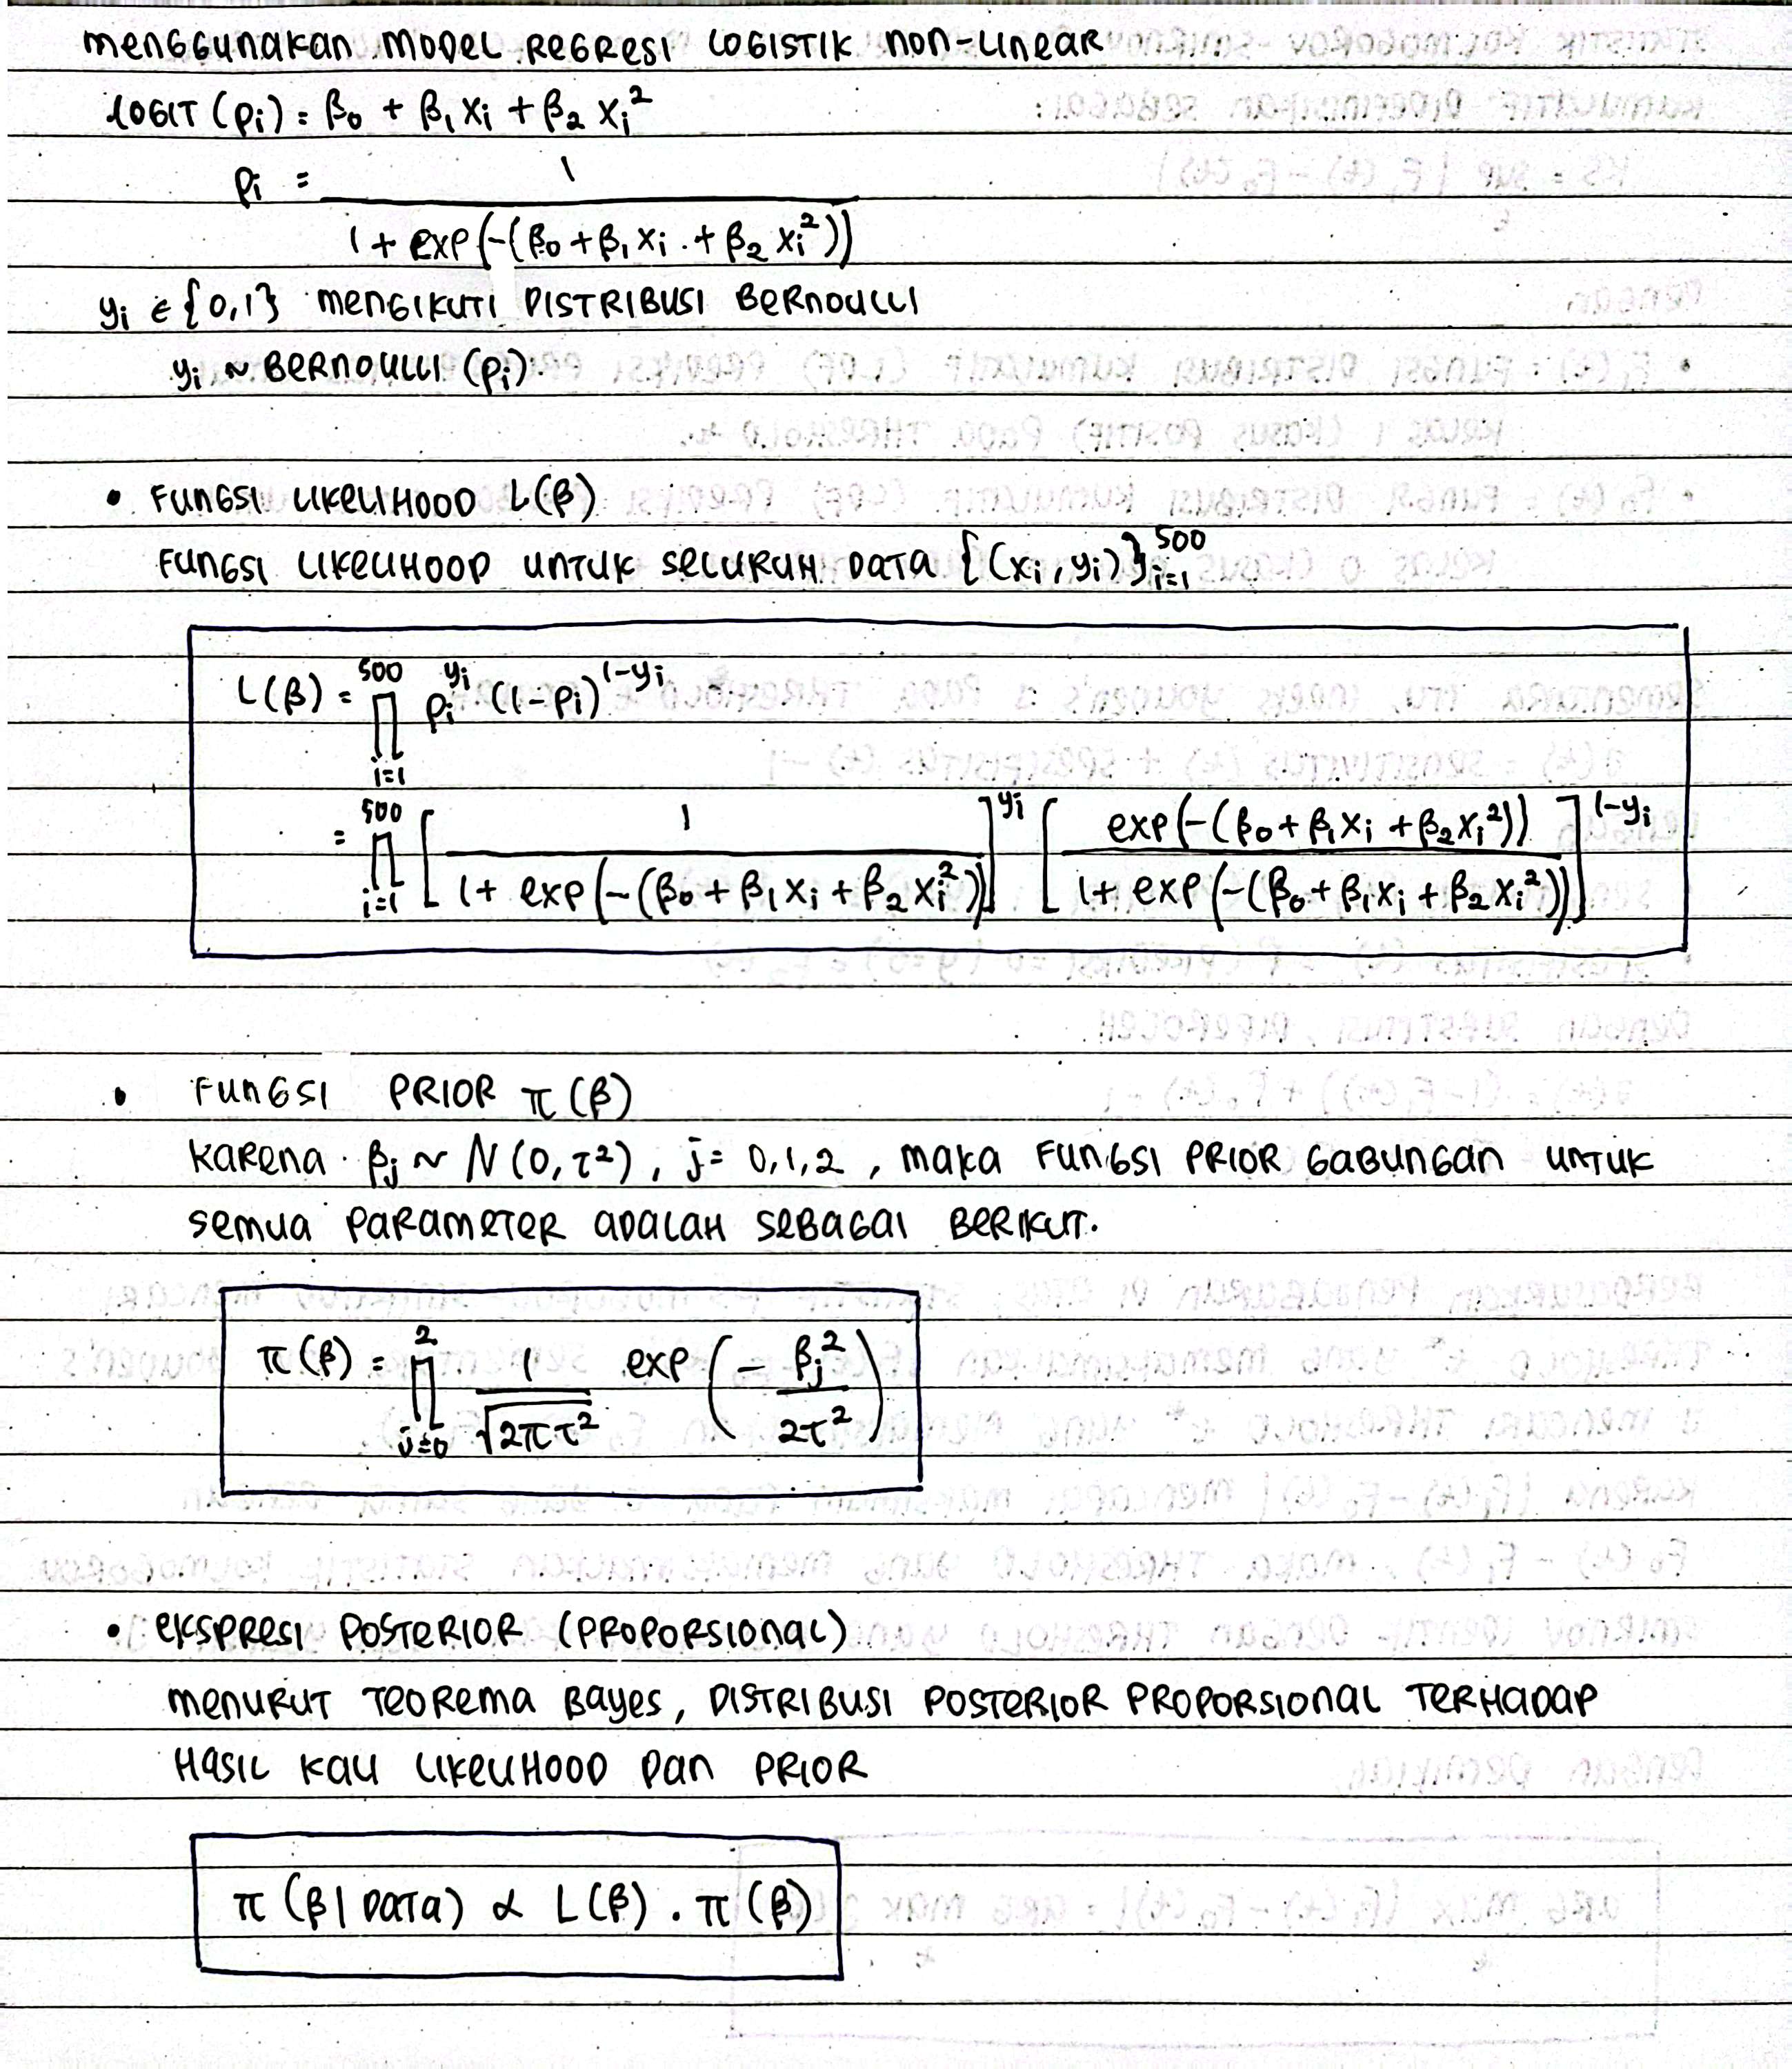 menggunakan model regresi logistik non-linear
logit (pi) = β0 + β1 xi + β2 xi²
pi = 1 / (1 + exp(-(β0 + β1 xi + β2 xi²)))
yi ∈ {0,1} mengikuti distribusi Bernoulli
yi ~ Bernoulli (pi)
• Fungsi likelihood L(β)
Fungsi likelihood untuk seluruh data {(xi, yi)}_{i=1}^{500}
L(β) = ∏_{i=1}^{500} pi^{yi} (1-pi)^{1-yi}
= ∏_{i=1}^{500} [1 / (1 + exp(-(β0 + β1 xi + β2 xi²)))]^{yi} [exp(-(β0 + β1 xi + β2 xi²)) / (1 + exp(-(β0 + β1 xi + β2 xi²)))]^{1-yi}
• Fungsi prior π(β)
Karena βj ~ N(0, τ²), j = 0,1,2, maka fungsi prior gabungan untuk
semua parameter adalah sebagai berikut.
π(β) = ∏_{j=0}^{2} 1/√(2πτ²) exp(- βj² / 2τ²)
• Ekspresi posterior (proporsional)
menurut teorema Bayes, distribusi posterior proporsional terhadap
hasil kali likelihood dan prior
π(β | data) ∝ L(β) . π(β)